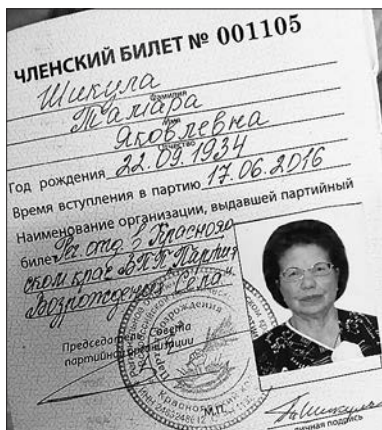 ЧЛЕНСКИЙ БИЛЕТ № 001105
Шикула
Фамилия
Тамара
Имя
Яковлевна
Отчество
Год рождения 22.09.1934
Время вступления в партию 17.06.2016
Наименование организации, выдавшей партийный
билет Рег. отд. в Краснояр
ском крае ВПП "Партия
Возрождения Села"
Председатель Совета
партийной организации
М.П.
личная подпись